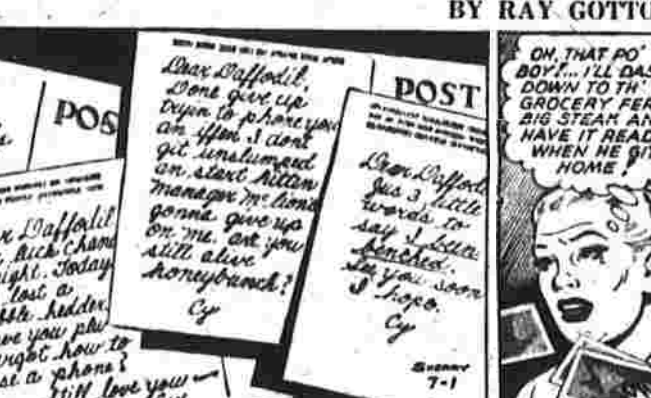 BY RAY GOTTO
POS
r Daffodil
Today
lost a
hedder
ve you
how to
a phone?
still love you
Dear Daffodil,
Done give up
tryin to phone you
an iffen I dont
git unslumped
an start hitten
manager
gonna give up
on me. are you
still alive
honeybunch?
Cy
POST
Dear Daffod
Jus 3 little
words to
say I been
benched.
See you soon
I hope.
Cy
7-1
OH, THAT PO'
BOY!... I'LL DAS
DOWN TO TH'
GROCERY FER
BIG STEAK AN
HAVE IT READ
WHEN HE GIT
HOME!